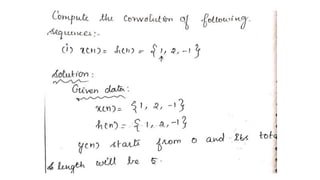 Compute the convolution of following
sequences:-
(i) x(n) = h(n) = {1, 2, -1}
↑
Solution:
Given data:
x(n) = {1, 2, -1}
h(n) = {1, 2, -1}
y(n) starts from 0 and its tota
length will be 5.